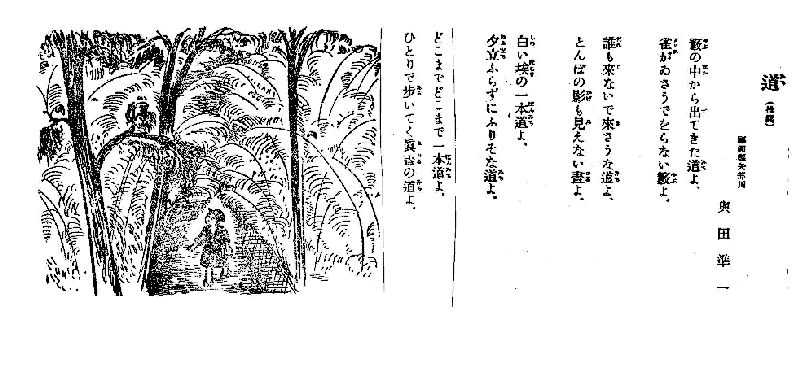 道
與田準一
藪の中から出てきた道よ、
雀がゐさうでをらない藪よ。
誰も來ないで來さうな道よ、
とんぼの影も見えない晝よ。
白い埃の一本道よ、
夕立ふらずにふりそな道よ。
どこまでどこまで一本道よ、
ひとりで歩いてく眞晝の道よ。